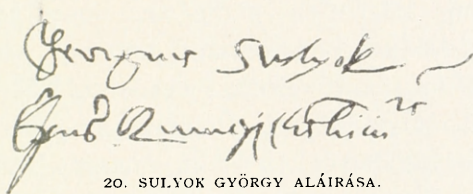 Georgius Sulyok
Ep̅us Quinqueeccle͞sien
20. SULYOK GYÖRGY ALÁÍRÁSA.